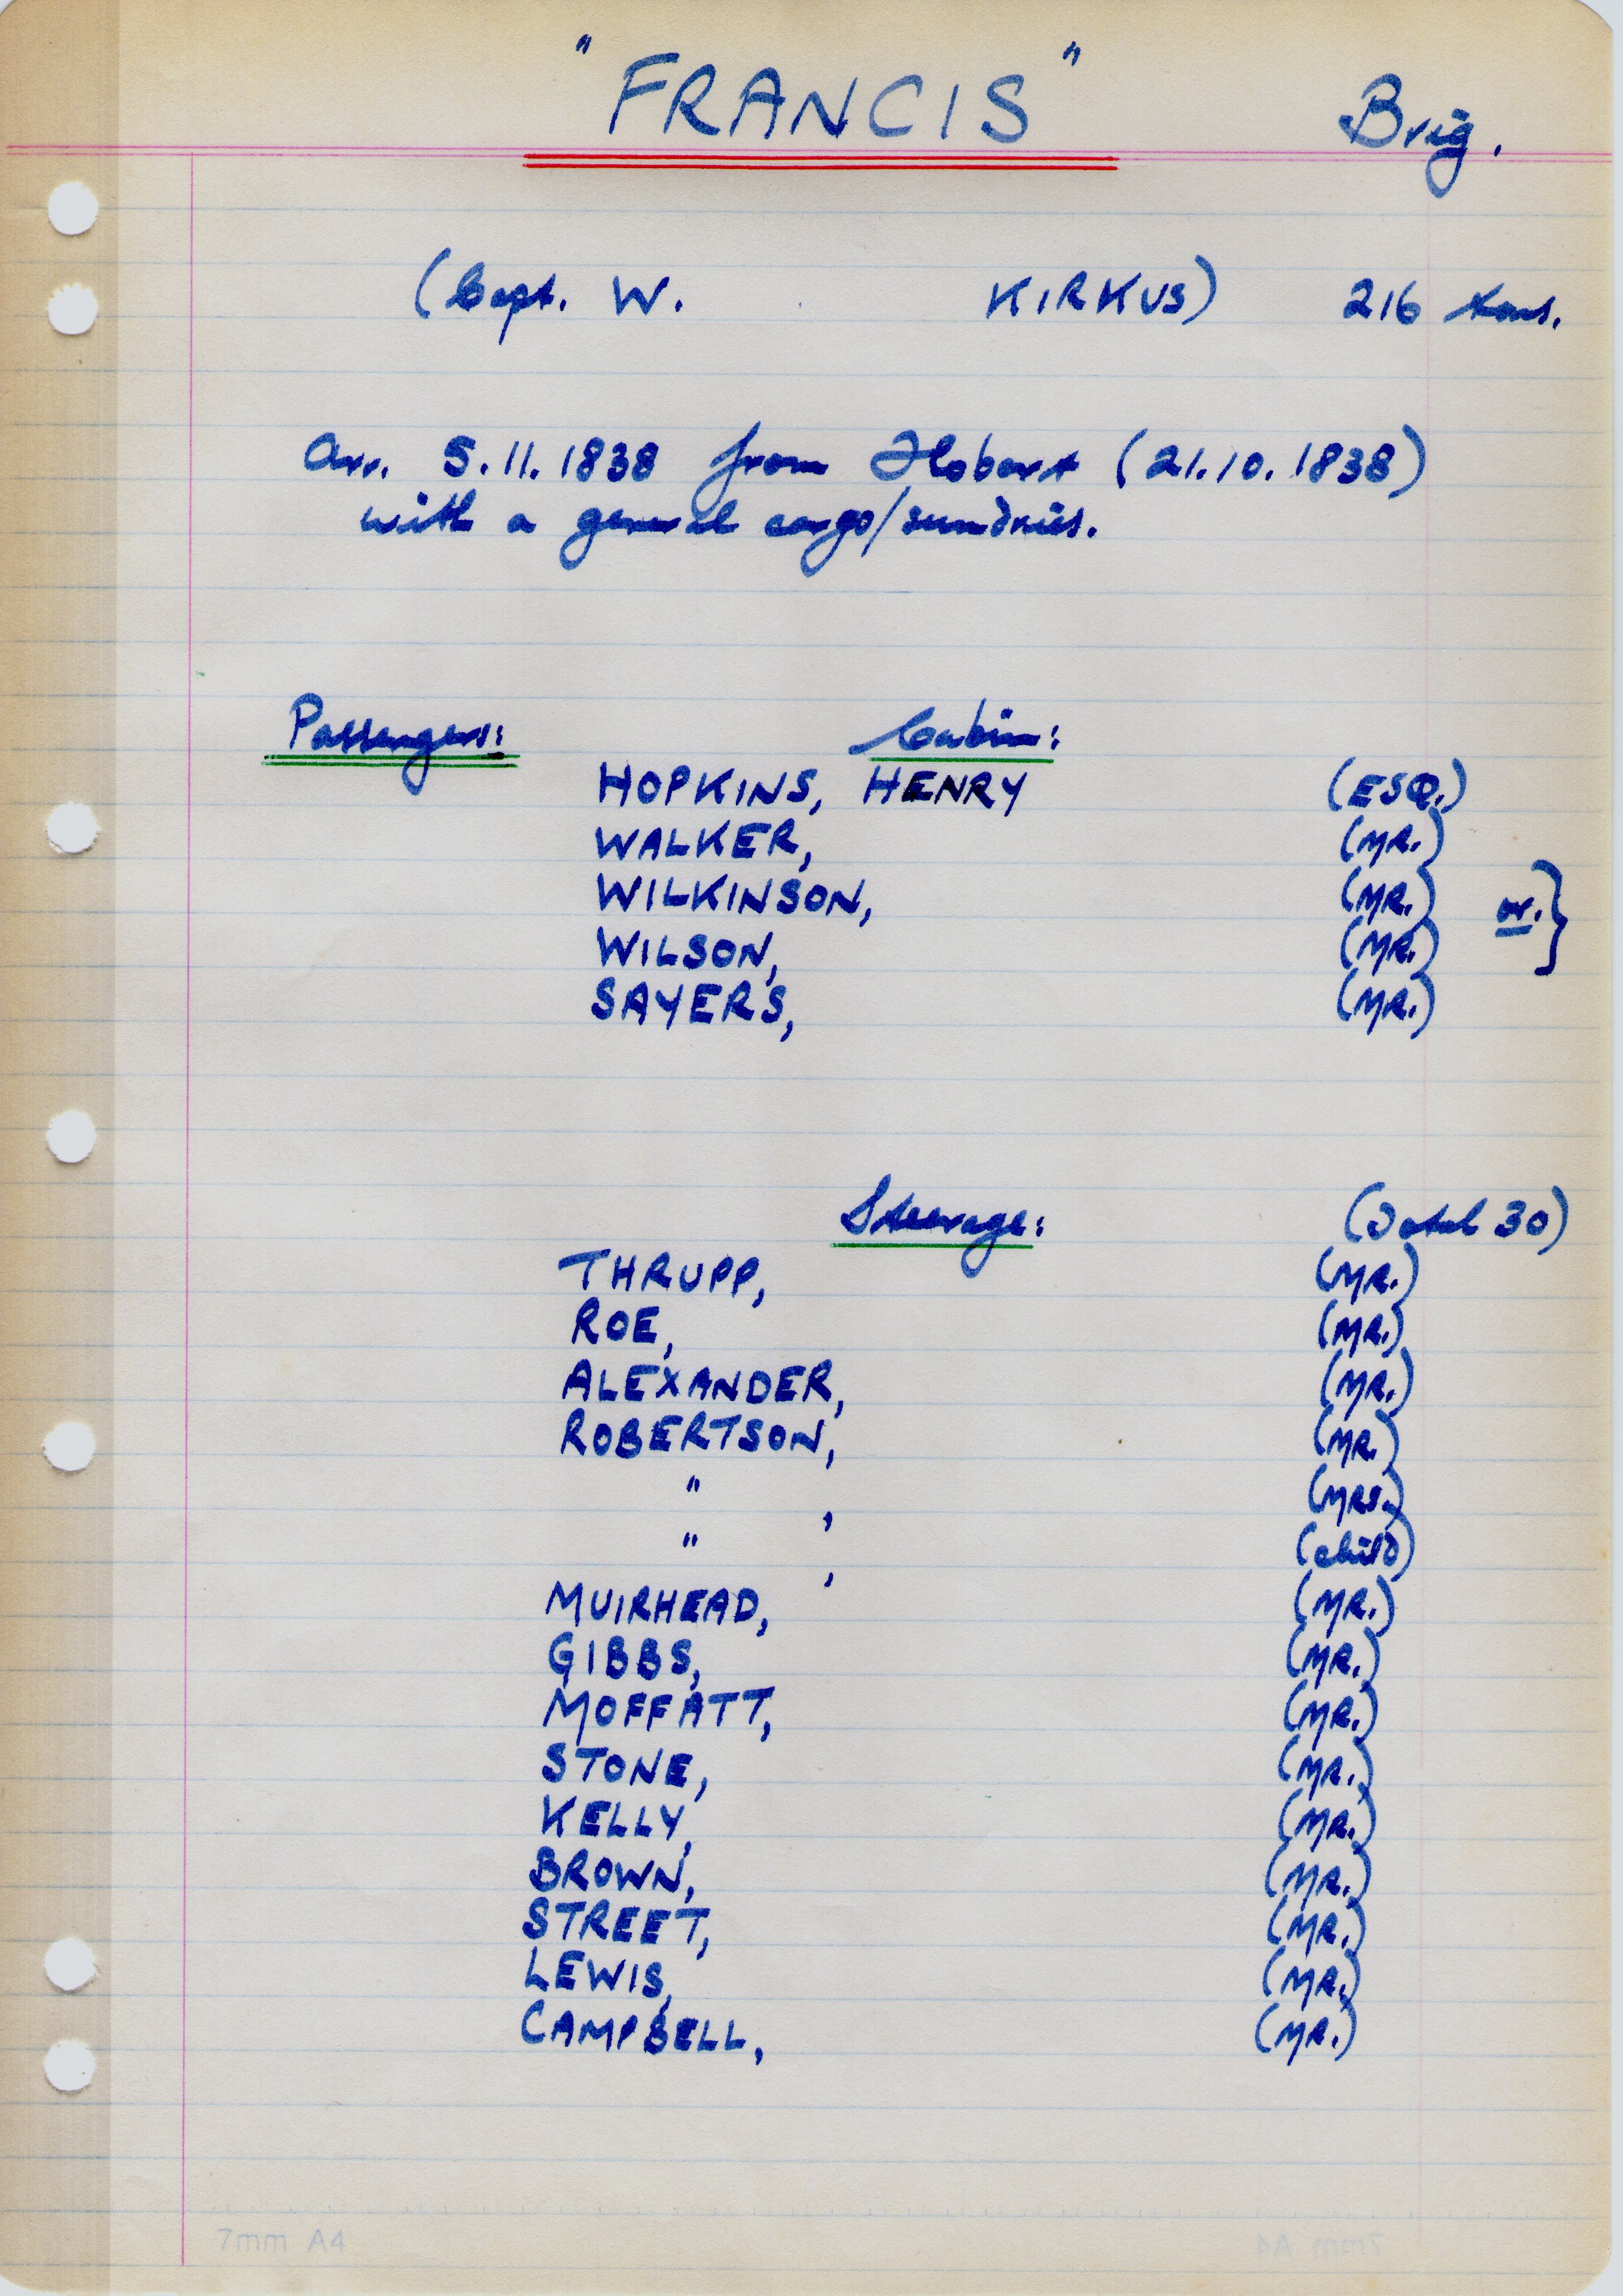 "FRANCIS" Brig.
(Capt. W. KIRKUS) 216 tons.
Arr. 5.11.1838 from Hobart (21.10.1838)
with a general cargo/sundries.
Passengers: Cabin:
HOPKINS, HENRY (ESQ.)
WALKER, (MR.)
WILKINSON, (MR.) or. }
WILSON, (MR.)
SAYERS, (MR.)
Steerage: (Total 30)
THRUPP, (MR.)
ROE, (MR.)
ALEXANDER, (MR.)
ROBERTSON, (MR.)
" , (MRS.)
" , (child)
MUIRHEAD, (MR.)
GIBBS, (MR.)
MOFFATT, (MR.)
STONE, (MR.)
KELLY, (MR.)
BROWN, (MR.)
STREET, (MR.)
LEWIS, (MR.)
CAMPBELL, (MR.)
7mm A4 7mm A4